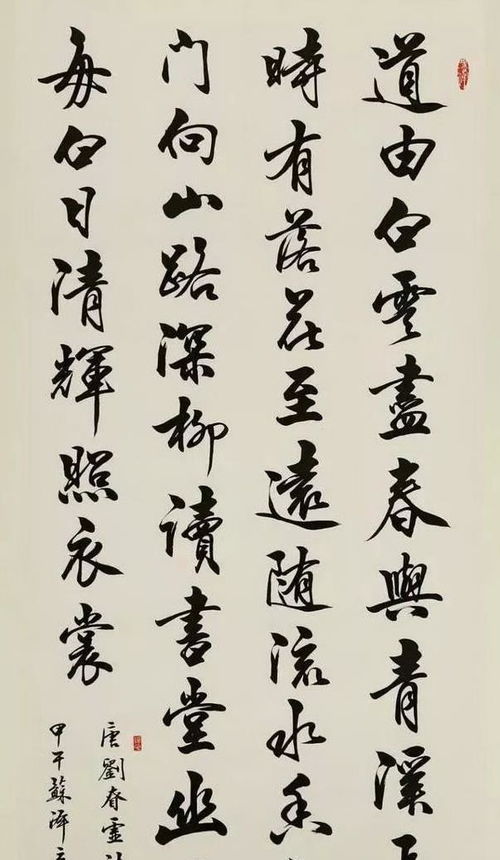 道由白雲盡春與青溪
時有落花至遠随流水香
门向山路深柳讀書堂幽
每白日清輝照衣裳
唐劉昚虛
甲午蘇澤